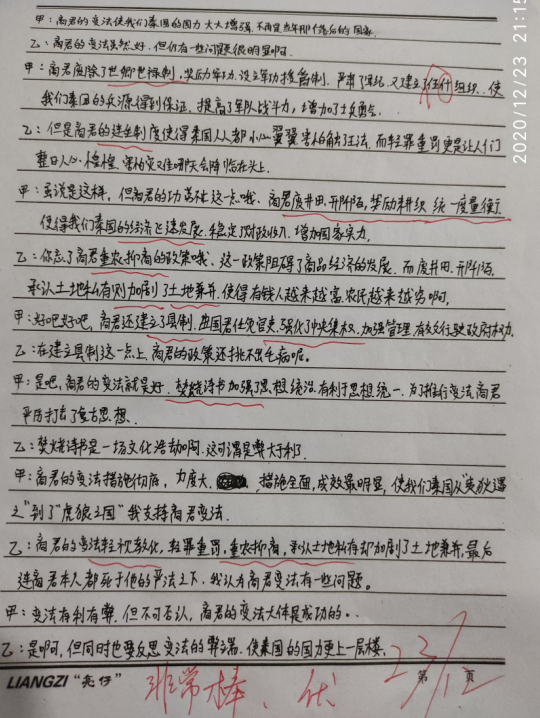 甲：商君的变法使我们秦国的国力大大增强，不再是当年那个落后的国家。
乙：商君的变法虽然好，但仍有一些问题很明显啊。
甲：商君废除了世卿世禄制，奖励军功，设立军功授爵制，严肃了军纪，又建立了伍什组织，使
我们秦国的兵源得到保证，提高了军队战斗力，增加了士气
乙：但是商君的连坐制度使得秦国人人都小心翼翼害怕触了王法，而轻罪重罚更是让人们
整日人心惶惶，害怕灾难哪天会降临在头上。
甲：虽说是这样，但商君的功劳不止这一点哦，商君废井田，开阡陌，奖励耕织，统一度量衡，
使得我们秦国的经济飞速发展，稳定了财政收入，增加国家实力。
乙：你忘了商君重农抑商的政策哦，这一政策阻碍了商品经济的发展，而废井田，开阡陌，
承认土地私有则加剧了土地兼并，使得有钱人越来越富，农民越来越穷啊，
甲：好吧好吧，商君还建立了县制，由国君任免官吏，强化了中央集权，加强管理，有效行驶政府
乙：在建立县制这一点上，商君的政策还挑不出毛病呢。
甲：是吧，商君的变法就是好，焚烧诗书加强了思想统治，有利于思想统一，为了推行变法，商君
严厉打击了复古思想.
乙：焚烧诗书是一场文化浩劫啊，这可谓是弊大于利了。
甲：商君的变法措施彻底，力度大，措施全面，成效最明显，使我们秦国从“夷狄遇
之”到了“虎狼之国”我支持商君变法.
乙：商君的变法轻视教化，轻罪重罚，重农抑商，承认土地私有却加剧了土地兼并，最后
连商君本人都死于他的严法之下，我认为商君变法有一些问题。
甲：变法有利有弊，但不可否认，商君的变法大体是成功的..
乙：是啊，但同时也要反思变法的弊端，使秦国的国力更上一层楼.
LIANGZI “亮仔” 第 页
非常棒、优
23/12
2020/12/23 21:15